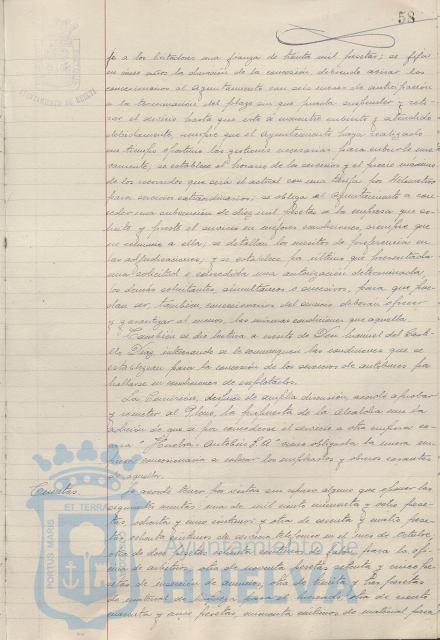 58
AYUNTAMIENTO DE HUELVA
je a los licitadores una fianza de treinta mil pesetas; se fija
en cinco años la duración de la concesión debiendo avisar los
concesionarios al Ayuntamiento con seis meses de anticipación
a la terminación del plazo sin que pueda suspender y reti-
rar el servicio hasta que este se encuentre cubierto y atendido
debidamente, siempre que el Ayuntamiento haya realizado
en tiempo oportuno las gestiones necesarias para cubrirlo nue-
vamente, se establece el horario de los servicios y el precio máximo
de los recorridos que será el actual con una tarifa por kilómetros
para servicios extraordinarios; se obliga el Ayuntamiento a con-
ceder una subvención de diez mil pesetas a la empresa que so-
licite y preste el servicio en mejores condiciones, siempre que
se comunique a ella; se detallan los méritos de preferencia en
las adjudicaciones, y se establece por último que presentada
una solicitud o concedida una autorización determinada,
los demás solicitantes, simultáneos o sucesivos, para que pue-
dan ser, también concesionarios del servicio deberán ofrecer
y garantizar al menos, las mismas condiciones que aquella.
También se dió lectura a escrito de Don Manuel del Casti-
llo Díaz interesando se le comuniquen las condiciones que se
establezcan para la concesión de los servicios de autobuses por
hallarse en condiciones de explotarlos.
La Comisión, después de amplia discusión, acordó aprobar
y remitir al Pleno, la propuesta de la Alcaldía con la
adición de que de por concederse el servicio a otra empresa es-
ta a "Huelva Autobús S.A" viene obligada la nueva em-
presa concesionaria a colocar los empleados y obreros cesantes
de aquella.
Cuentas. Se acordó tener por vistas sin reparo alguno que ofrecer las
siguientes cuentas: una de mil ciento cincuenta y ocho pese-
tas, ochenta y cinco céntimos; y otra de sesenta y cuatro pese-
tas, ochenta céntimos de servicio telefónico en el mes de Octubre,
otra de doce pesetas
cina de arbitrios, otra de noventa pesetas setenta y cinco pe-
setas de inserción de anuncios, otra de treinta y tres pesetas
de material de limpieza para el
cincuenta y once pesetas, cincuenta céntimos de material para
PORTUS MARIS ET TERRAE
Ayuntamiento de
HUELVA